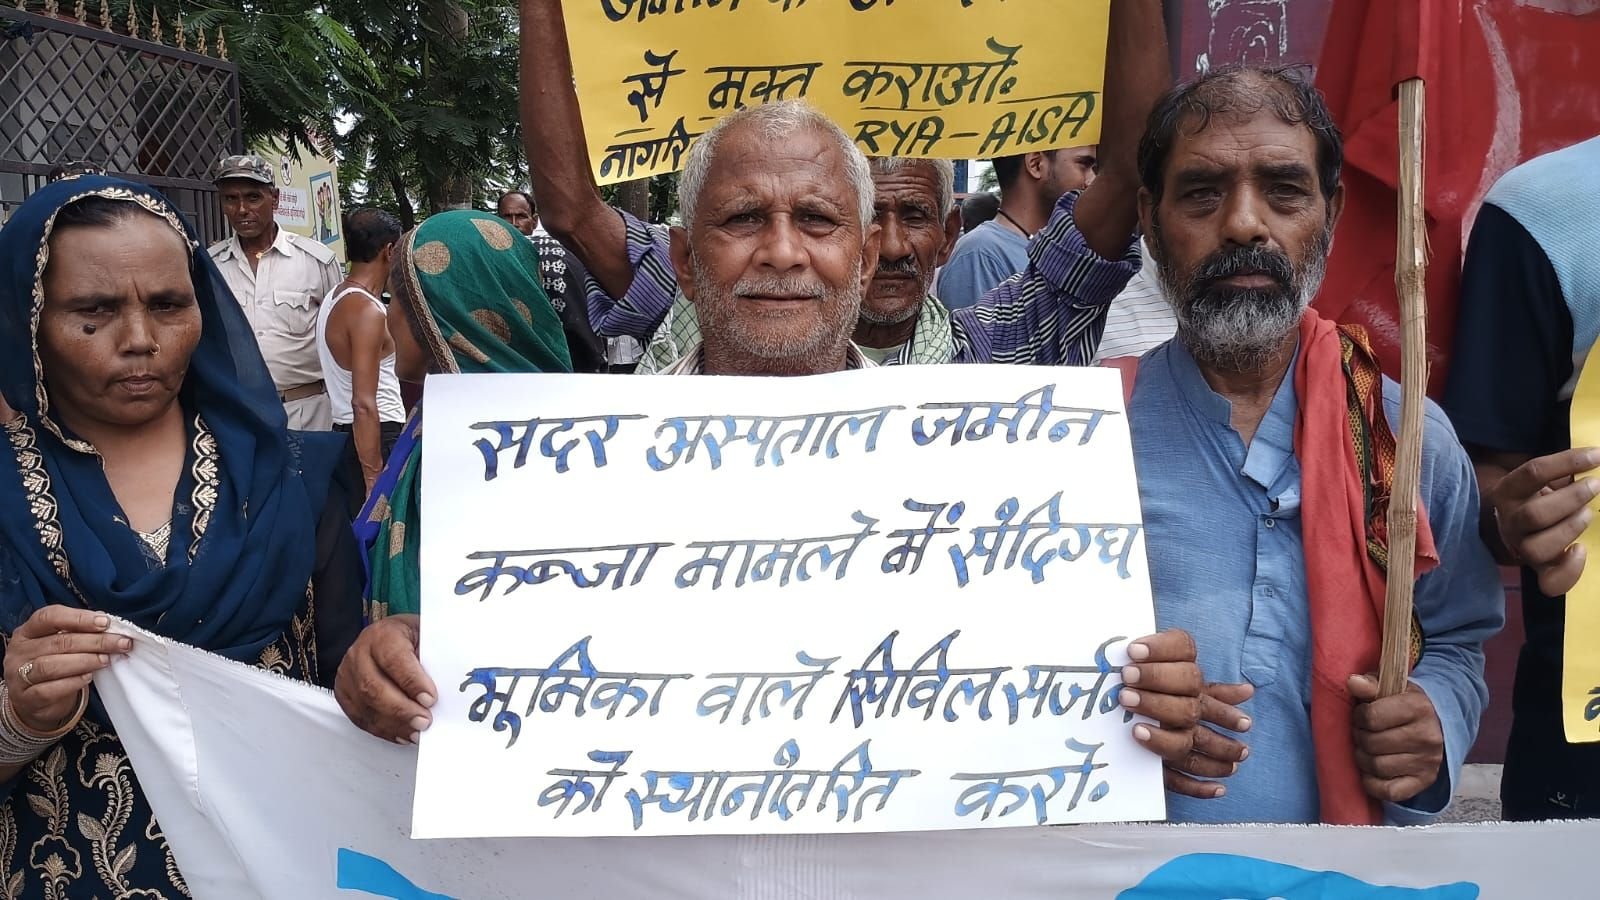 से मुक्त कराओ.
नागरि RYA-AISA
सदर अस्पताल जमीन
कब्जा मामले में संदिग्ध
भूमिका वाले सिविल सर्जन
को स्थानांतरित करो.